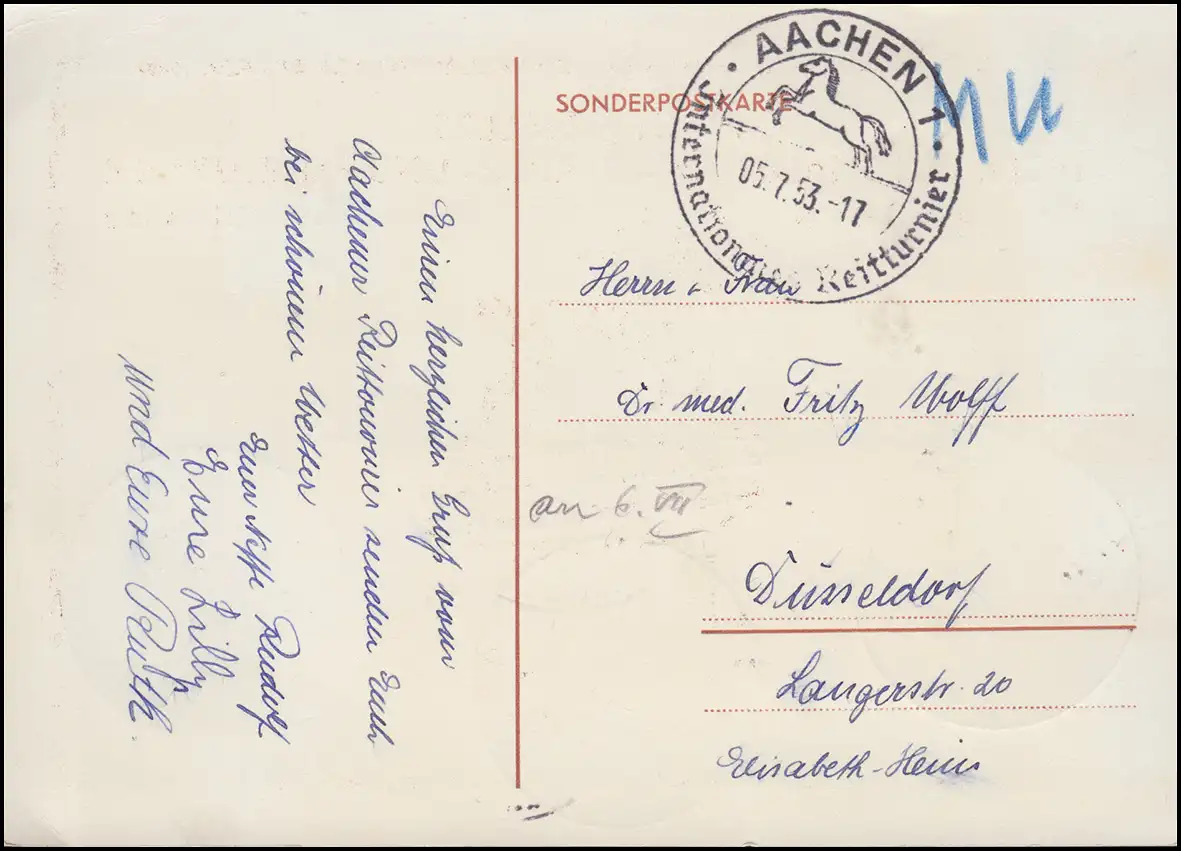 SONDERPOSTKARTE
· AACHEN 1 ·
Internationales Reitturnier
05.7.53.-17
MU
Einen herzlichen Gruß vom
Aachener Reitturnier senden Euch
bei schönem Wetter
Euer Neffe Rudolf
Eure Lilly
und Eure Ruth.
Herrn u Frau
Dr. med. Fritz Wolff
an 6. VII
Düsseldorf
Langerstr. 20
Elisabeth-Heim